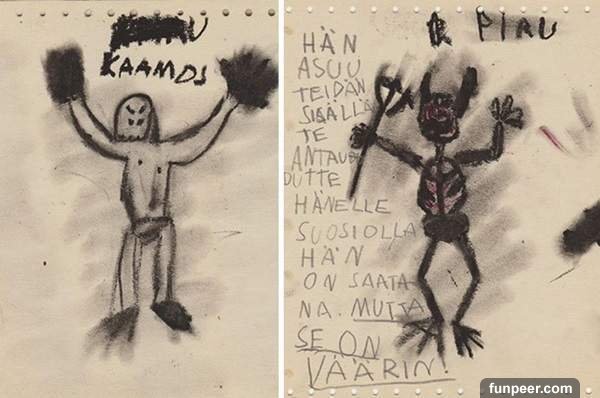 KAAMOS
PIRU
HÄN
ASUU
TEIDÄN
SISÄLLÄ
TE
ANTAUDUTTE
HÄNELLE
SUOSIOLLA
HÄN
ON SAATA
NA. MUTTA
SE ON
VÄÄRIN!
funpeer.com